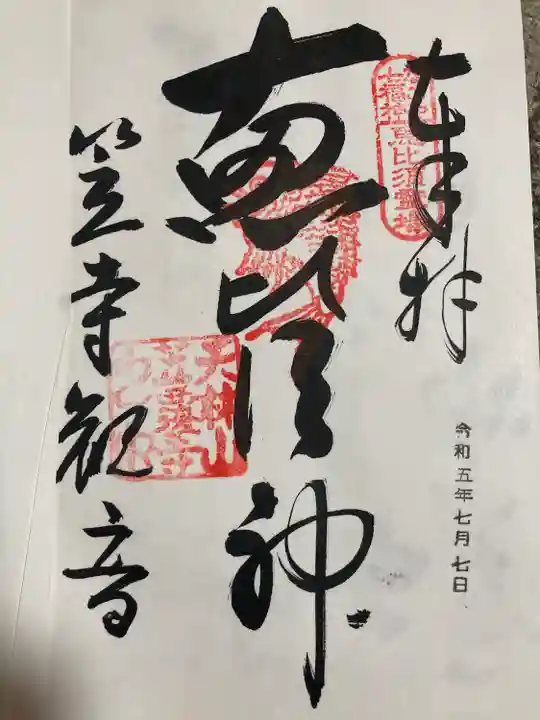 奉拝
令和五年七月七日
恵比須神
笠寺観音